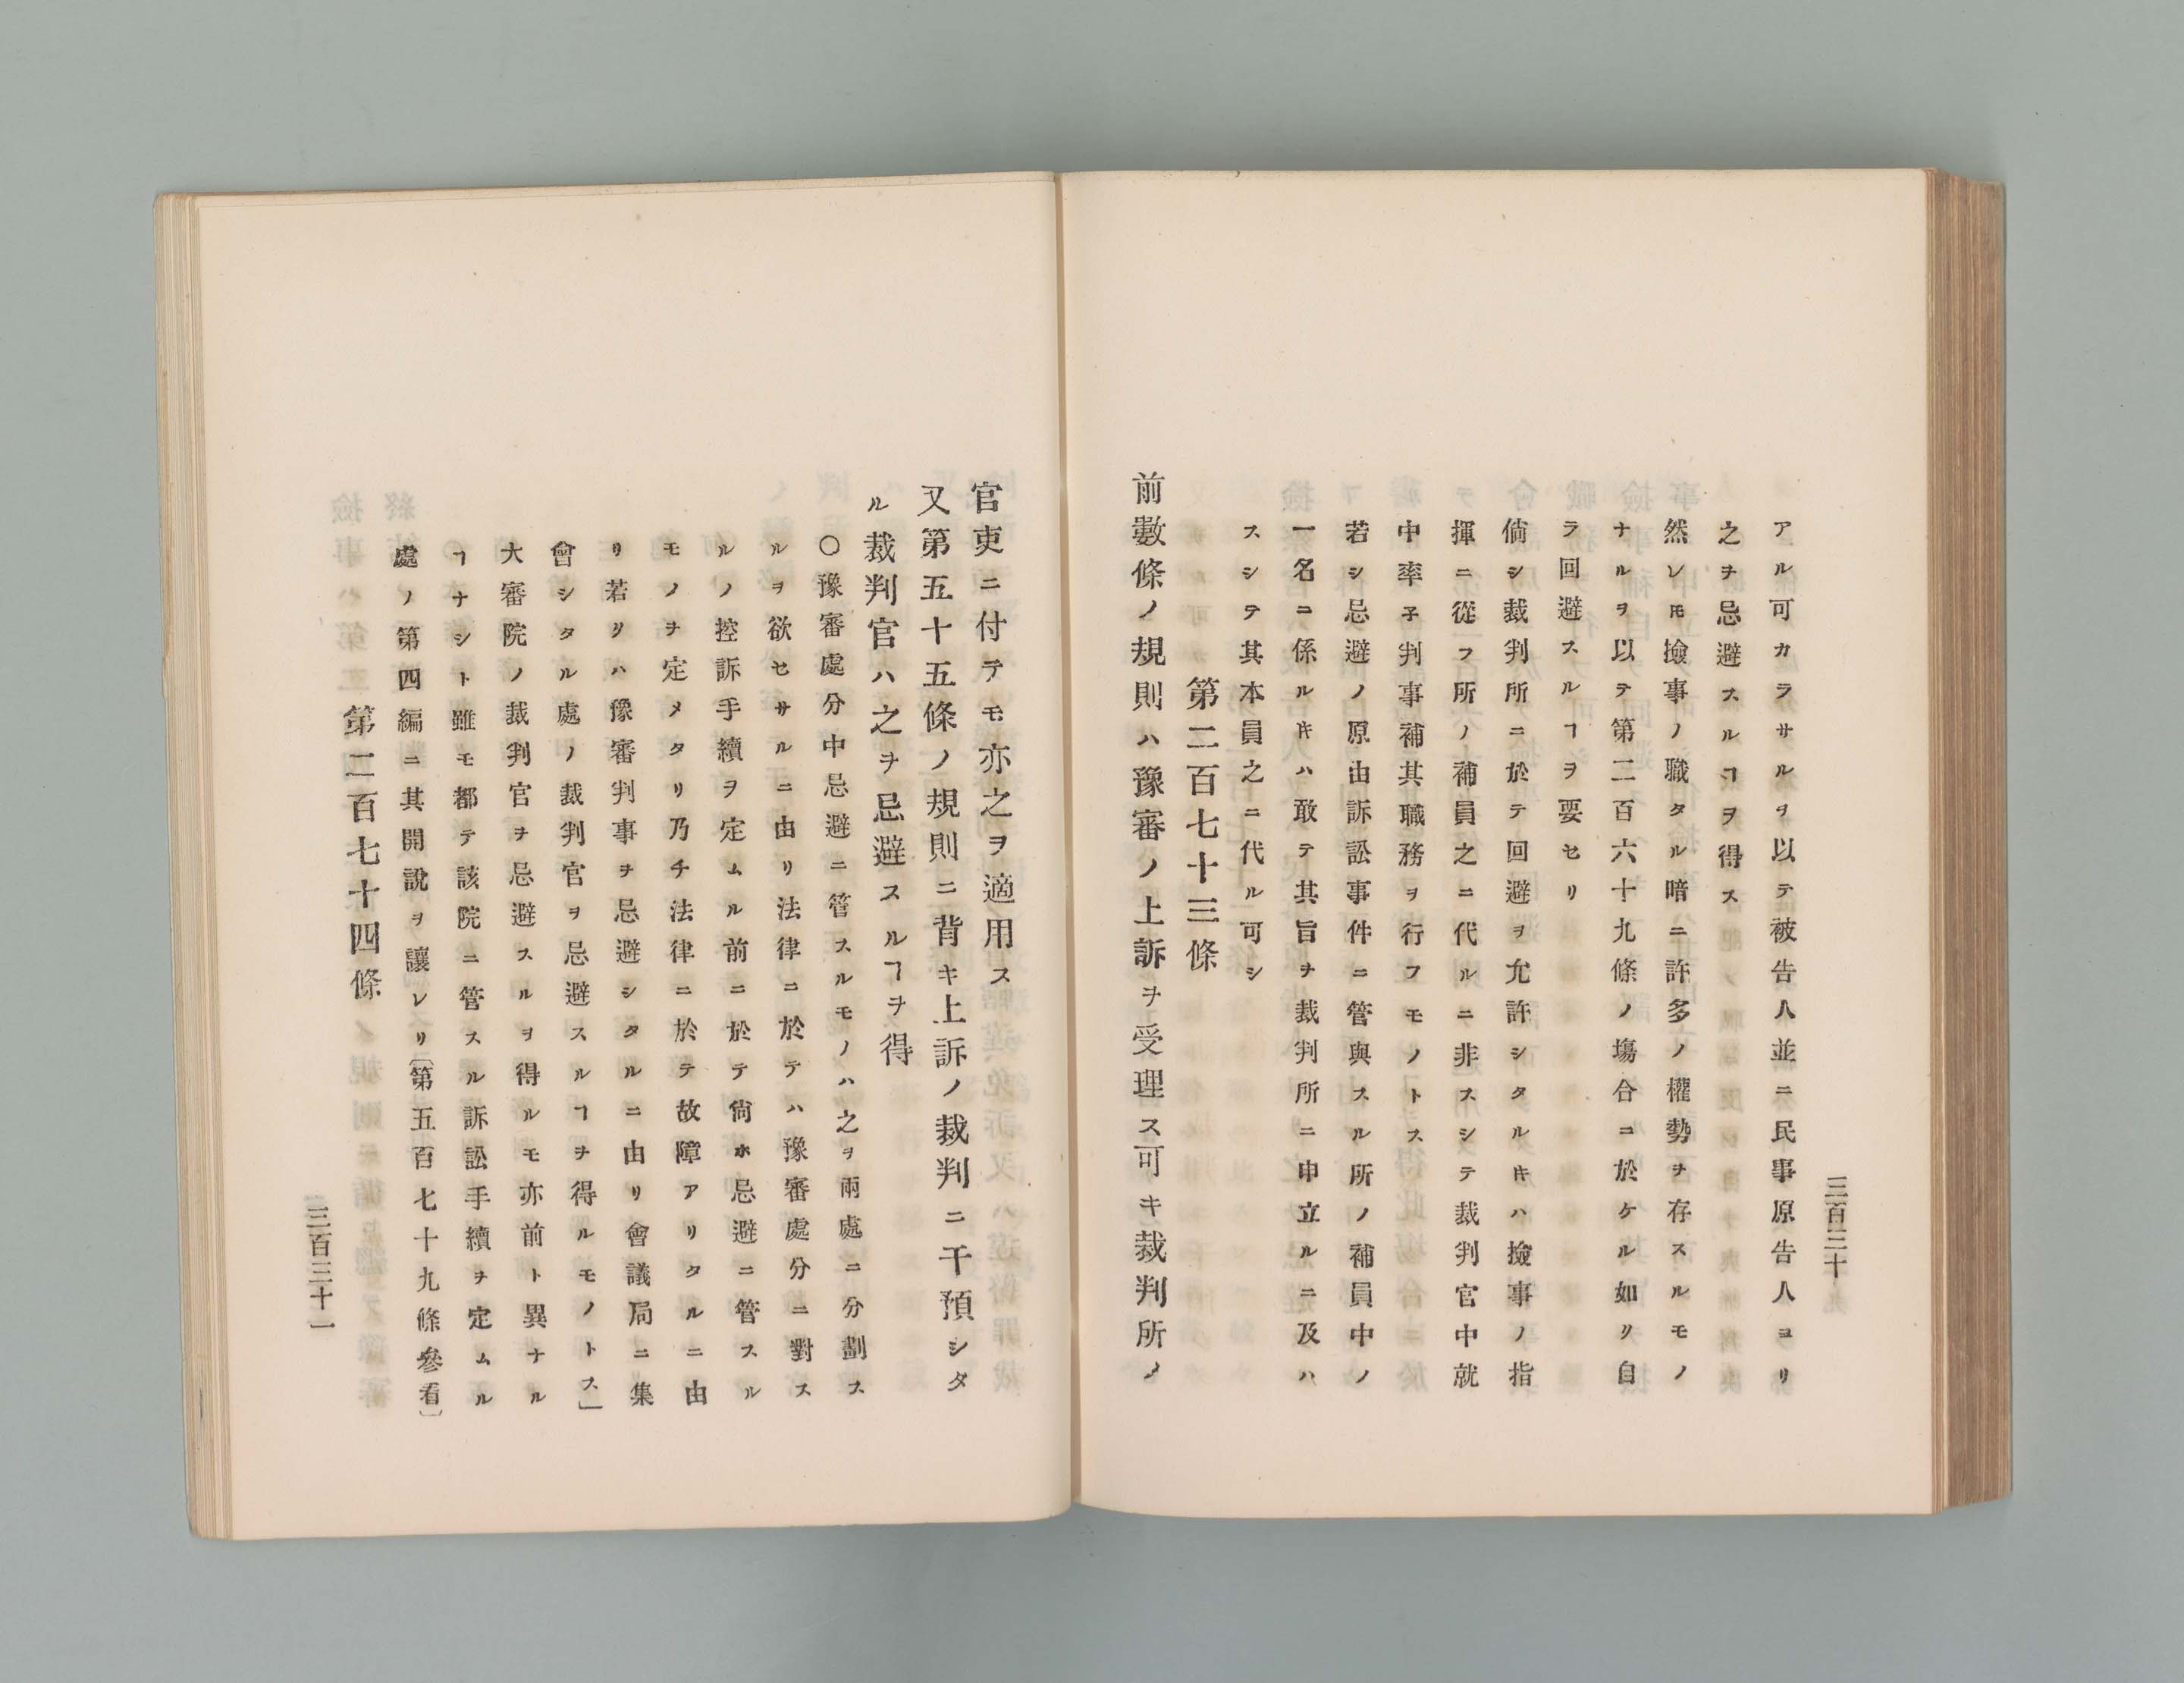 アル可カラサルヲ以テ被告人並ニ民事原告人ヨリ
之ヲ忌避スルヿヲ得ス
然レ𪜈撿事ノ職タル暗ニ許多ノ權勢ヲ存スルモノ
ナルヲ以テ第二百六十九條ノ塲合ニ於ケル如リ自
ラ回避スルヿヲ要セリ
倘シ裁判所ニ於テ回避ヲ允許シタルキハ撿事ノ指
揮ニ從フ所ノ補員之ニ代ルニ非スシテ裁判官中就
中率子判事補其職務ヲ行フモノトス
若シ忌避ノ原由訴訟事件ニ管與スル所ノ補員中ノ
一名ニ係ルキハ敢テ其旨ヲ裁判所ニ申立ルニ及ハ
スシテ其本員之ニ代ル可シ
第二百七十三條
前數條ノ規則ハ豫審ノ上訴ヲ受理ス可キ裁判所ノ
三百三十
官吏ニ付テモ亦之ヲ適用ス
又第五十五條ノ規則ニ背キ上訴ノ裁判ニ干預シタ
ル裁判官ハ之ヲ忌避スルヿヲ得
〇豫審處分中忌避ニ管スルモノハ之ヲ兩處ニ分劃ス
ルヲ欲セサルニ由リ法律ニ於テハ豫審處分ニ對ス
ルノ控訴手續ヲ定ムル前ニ於テ尙ホ忌避ニ管スル
モノヲ定メタリ乃チ法律ニ於テ故障アリタルニ由
リ若リハ豫審判事ヲ忌避シタルニ由リ會議局ニ集
會シタル處ノ裁判官ヲ忌避スルヿヲ得ルモノトス」
大審院ノ裁判官ヲ忌避スルヲ得ルモ亦前ト異ナル
ヿナシト雖モ都テ該院ニ管スル訴訟手續ヲ定ムル
處ノ第四編ニ其開說ヲ讓レリ〔第五百七十九條參看〕
第二百七十四條
三百三十一